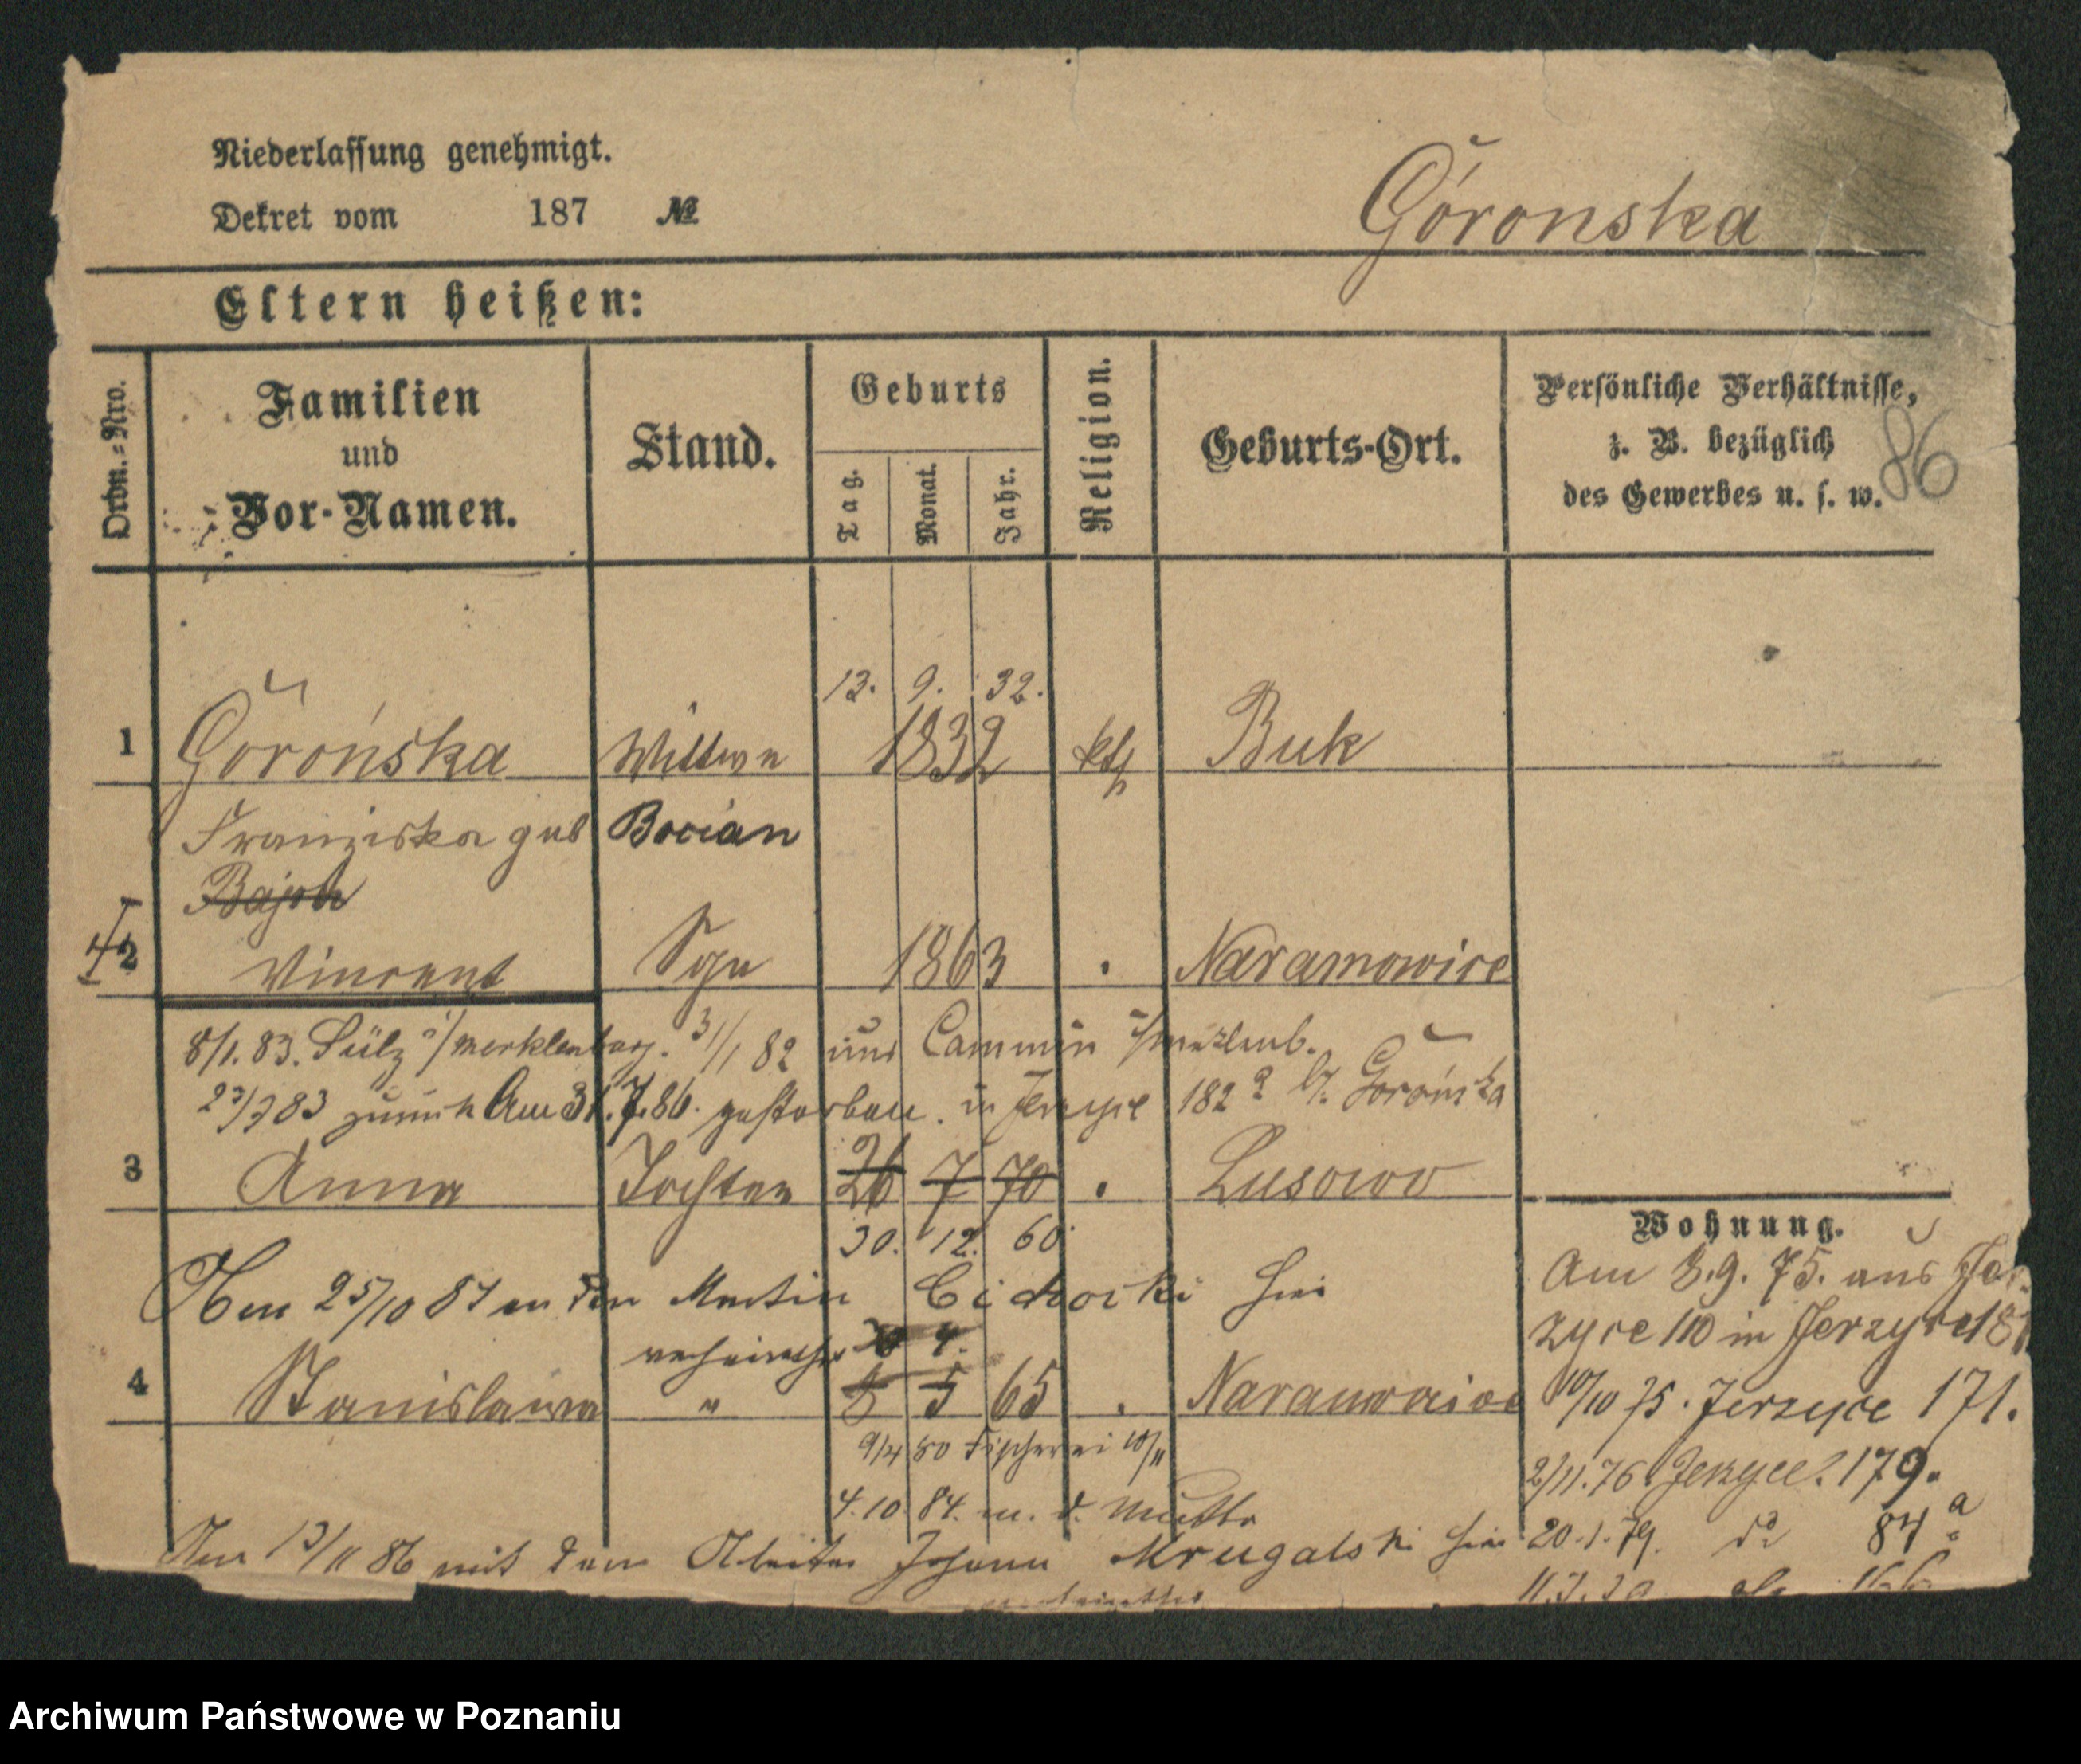 Niederlassung genehmigt.
Dekret vom 187 №
Góronska
Eltern heißen:
Ordn.-Nro.
Familien
und
Vor-Namen.
Stand.
Geburts
Tag.
Monat.
Jahr.
Religion.
Geburts-Ort.
Persönliche Verhältnisse,
z. B. bezüglich
des Gewerbes u. s. w.
86
13. 9. 32.
1 Górońska Wittwe 1832 kth Buk
Franziska geb Bocian
2 Vincent Sohn 1863 Naramowice
8/1. 83. Sülz i/Mecklenburg. 3/1 82 aus Cammin i/Mecklenb.
23/7 83 zurück Am 31.7.86. gestorben in Jerzyce 182
3 Anna Tochter 26 7 70 Lusowo
30. 12. 60
Am 25/10 87 an den Martin Cichocki hier
verheirathet
4 Stanislawa " 8 5 65 Naramowice
9/4 80 Fischerei 10/11
4.10 84. m. d. Mutter
Am 13/11 86 mit dem Arbeiter Johann Mrugalski hier
Wohnung.
Am 3.9.75. aus Jer-
zyce 110 in Jerzyce 181
10/10 75. Jerzyce 171.
2/11.76. Jerzyce. 179.
20.1.79. do 84 a
Archiwum Państwowe w Poznaniu